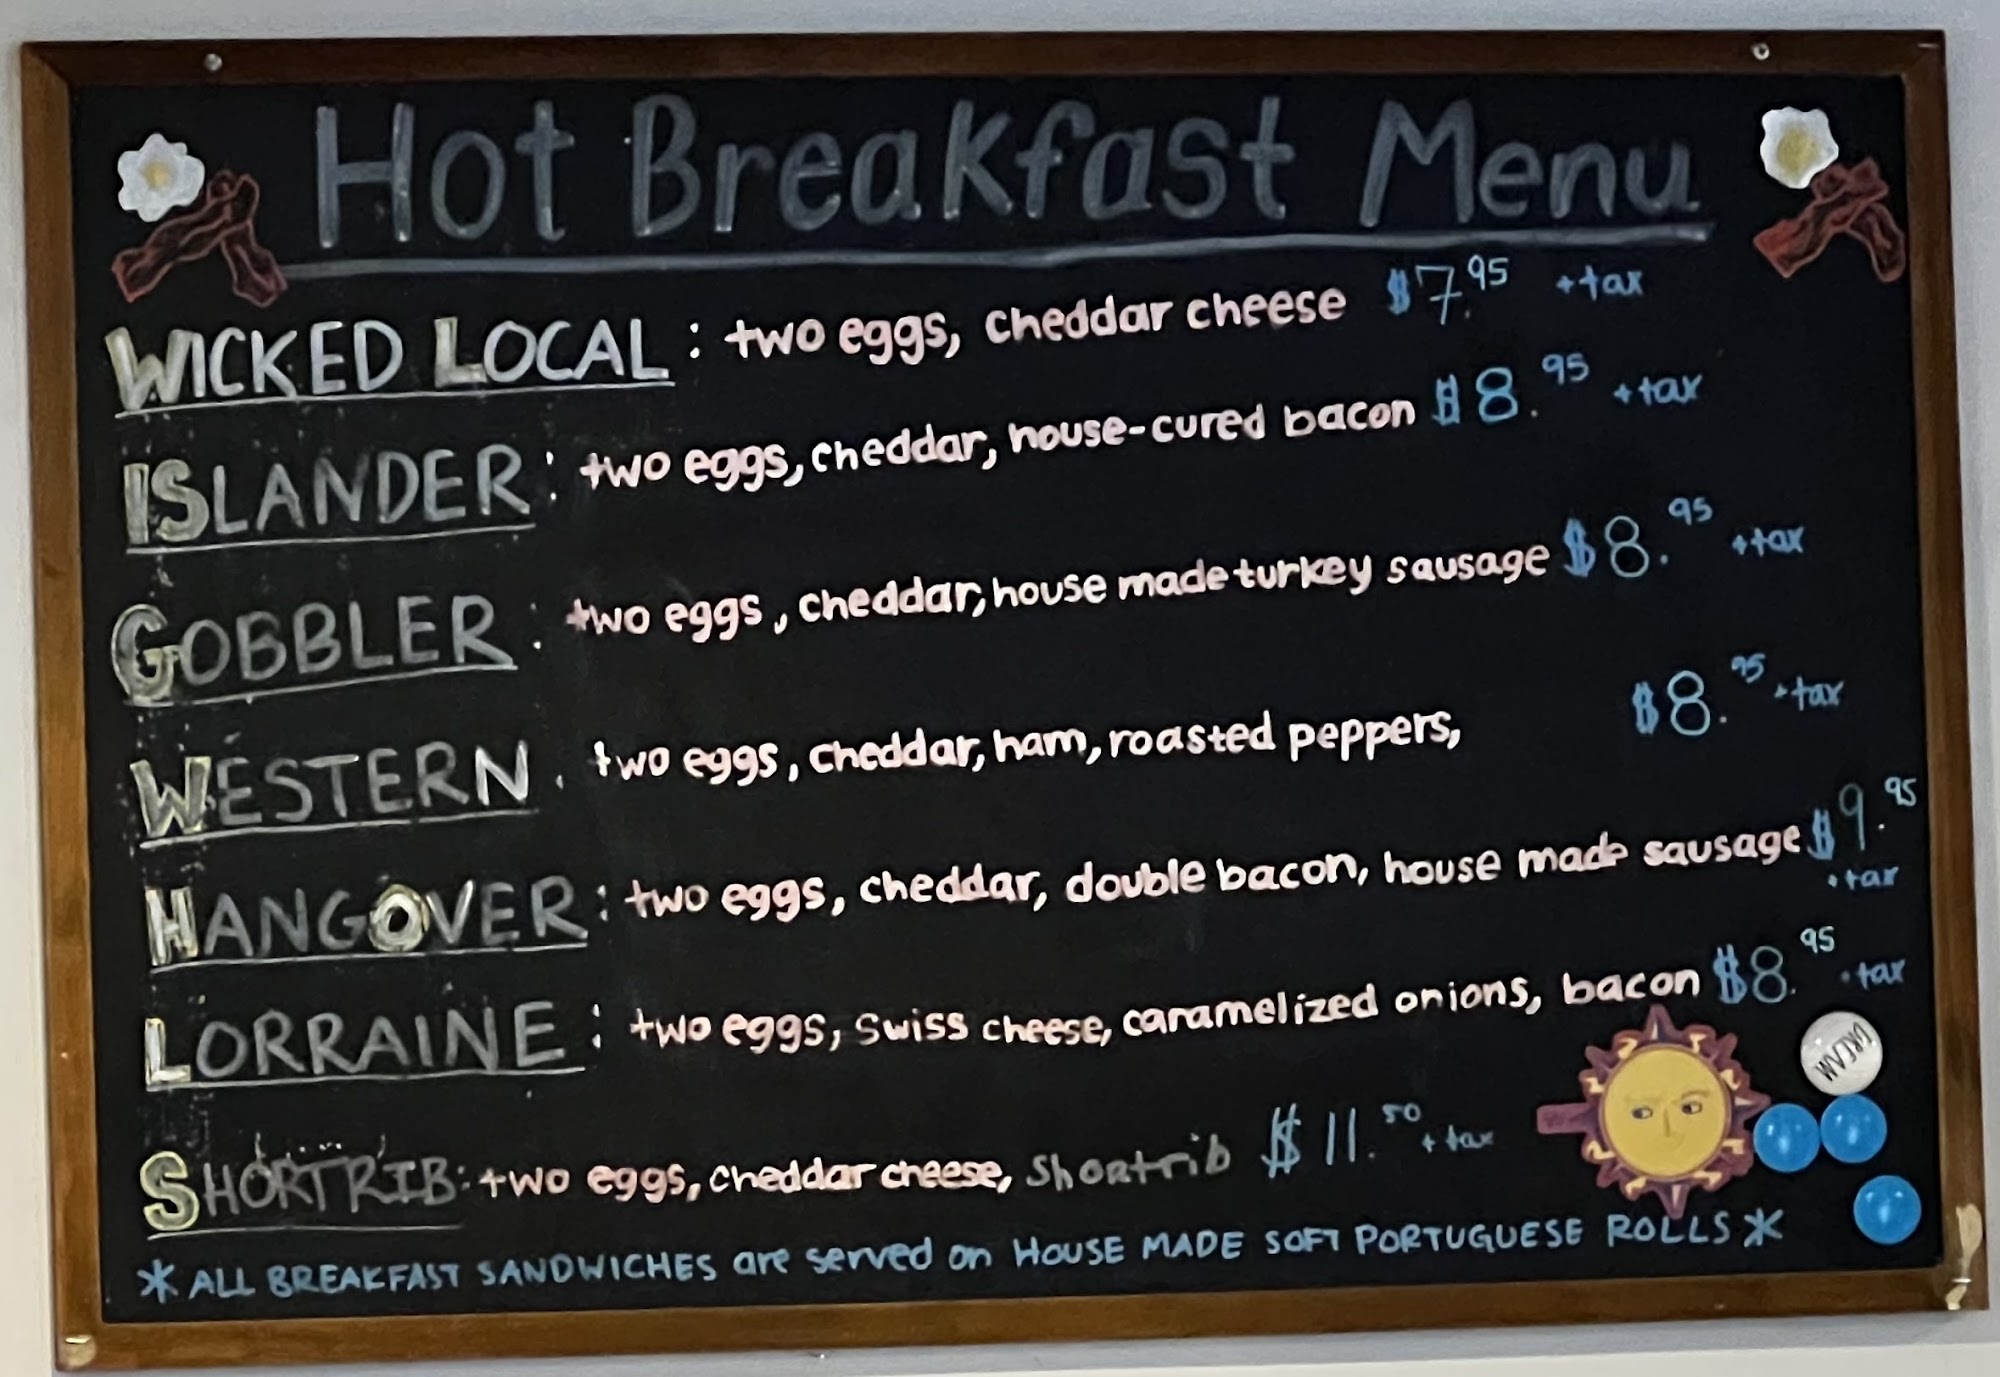 Hot Breakfast Menu
WICKED LOCAL: two eggs, cheddar cheese $7.95 + tax
ISLANDER: two eggs, cheddar, house-cured bacon $8.95 + tax
GOBBLER: two eggs, cheddar, house made turkey sausage $8.95 + tax
WESTERN. two eggs, cheddar, ham, roasted peppers, $8.95 + tax
HANGOVER: two eggs, cheddar, double bacon, house made sausage $9.95
+ tax
LORRAINE: two eggs, swiss cheese, caramelized onions, bacon $8.95 + tax
DREAM
SHORTRIB: two eggs, cheddar cheese, Shortrib $11.50 + tax
*ALL BREAKFAST SANDWICHES are served on HOUSE MADE SOFT PORTUGUESE ROLLS*